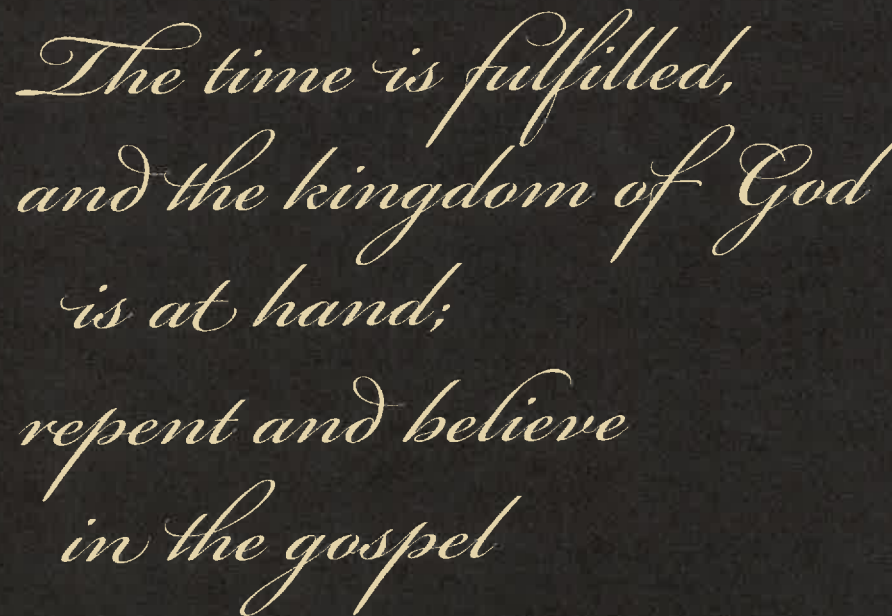 The time is fulfilled,
and the kingdom of God
is at hand;
repent and believe
in the gospel